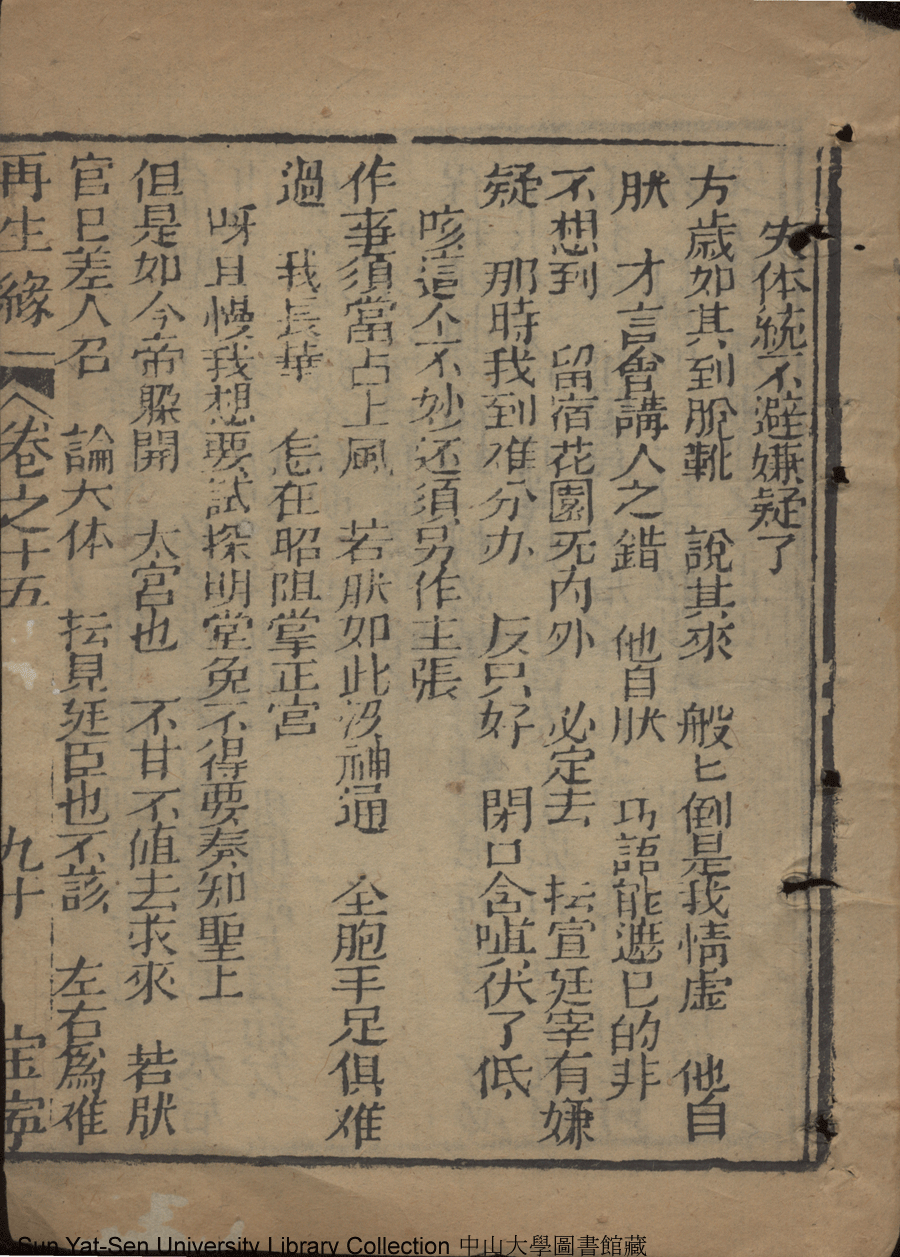 失体統不避嫌疑了
方歳如其到脫靴　說其來　般匕倒是我情虛　他自
肰　才言會講人之錯　他自肰　巧語能遮已的非
不想到　留宿花園无内外　必定去　抎宣廷宰有嫌
疑　那時我到难分办　反只好　閉口含嗔伏了低
咳這个不妙还須另作主張
作事須當占上風　若肰如此没神通　仝胞手足俱难
過　我長華　怎在昭阳掌正宮
呀且慢我想要試探明堂免不得要奏知聖上
但是如今帝躲開　太宮也　不甘不值去求來　若肰
官已差人召　論大体　抎見廷臣也不該　左右為难
再生緣　卷之十五　九十　宝寧
Sun Yat-Sen University Library Collection 中山大學圖書館藏